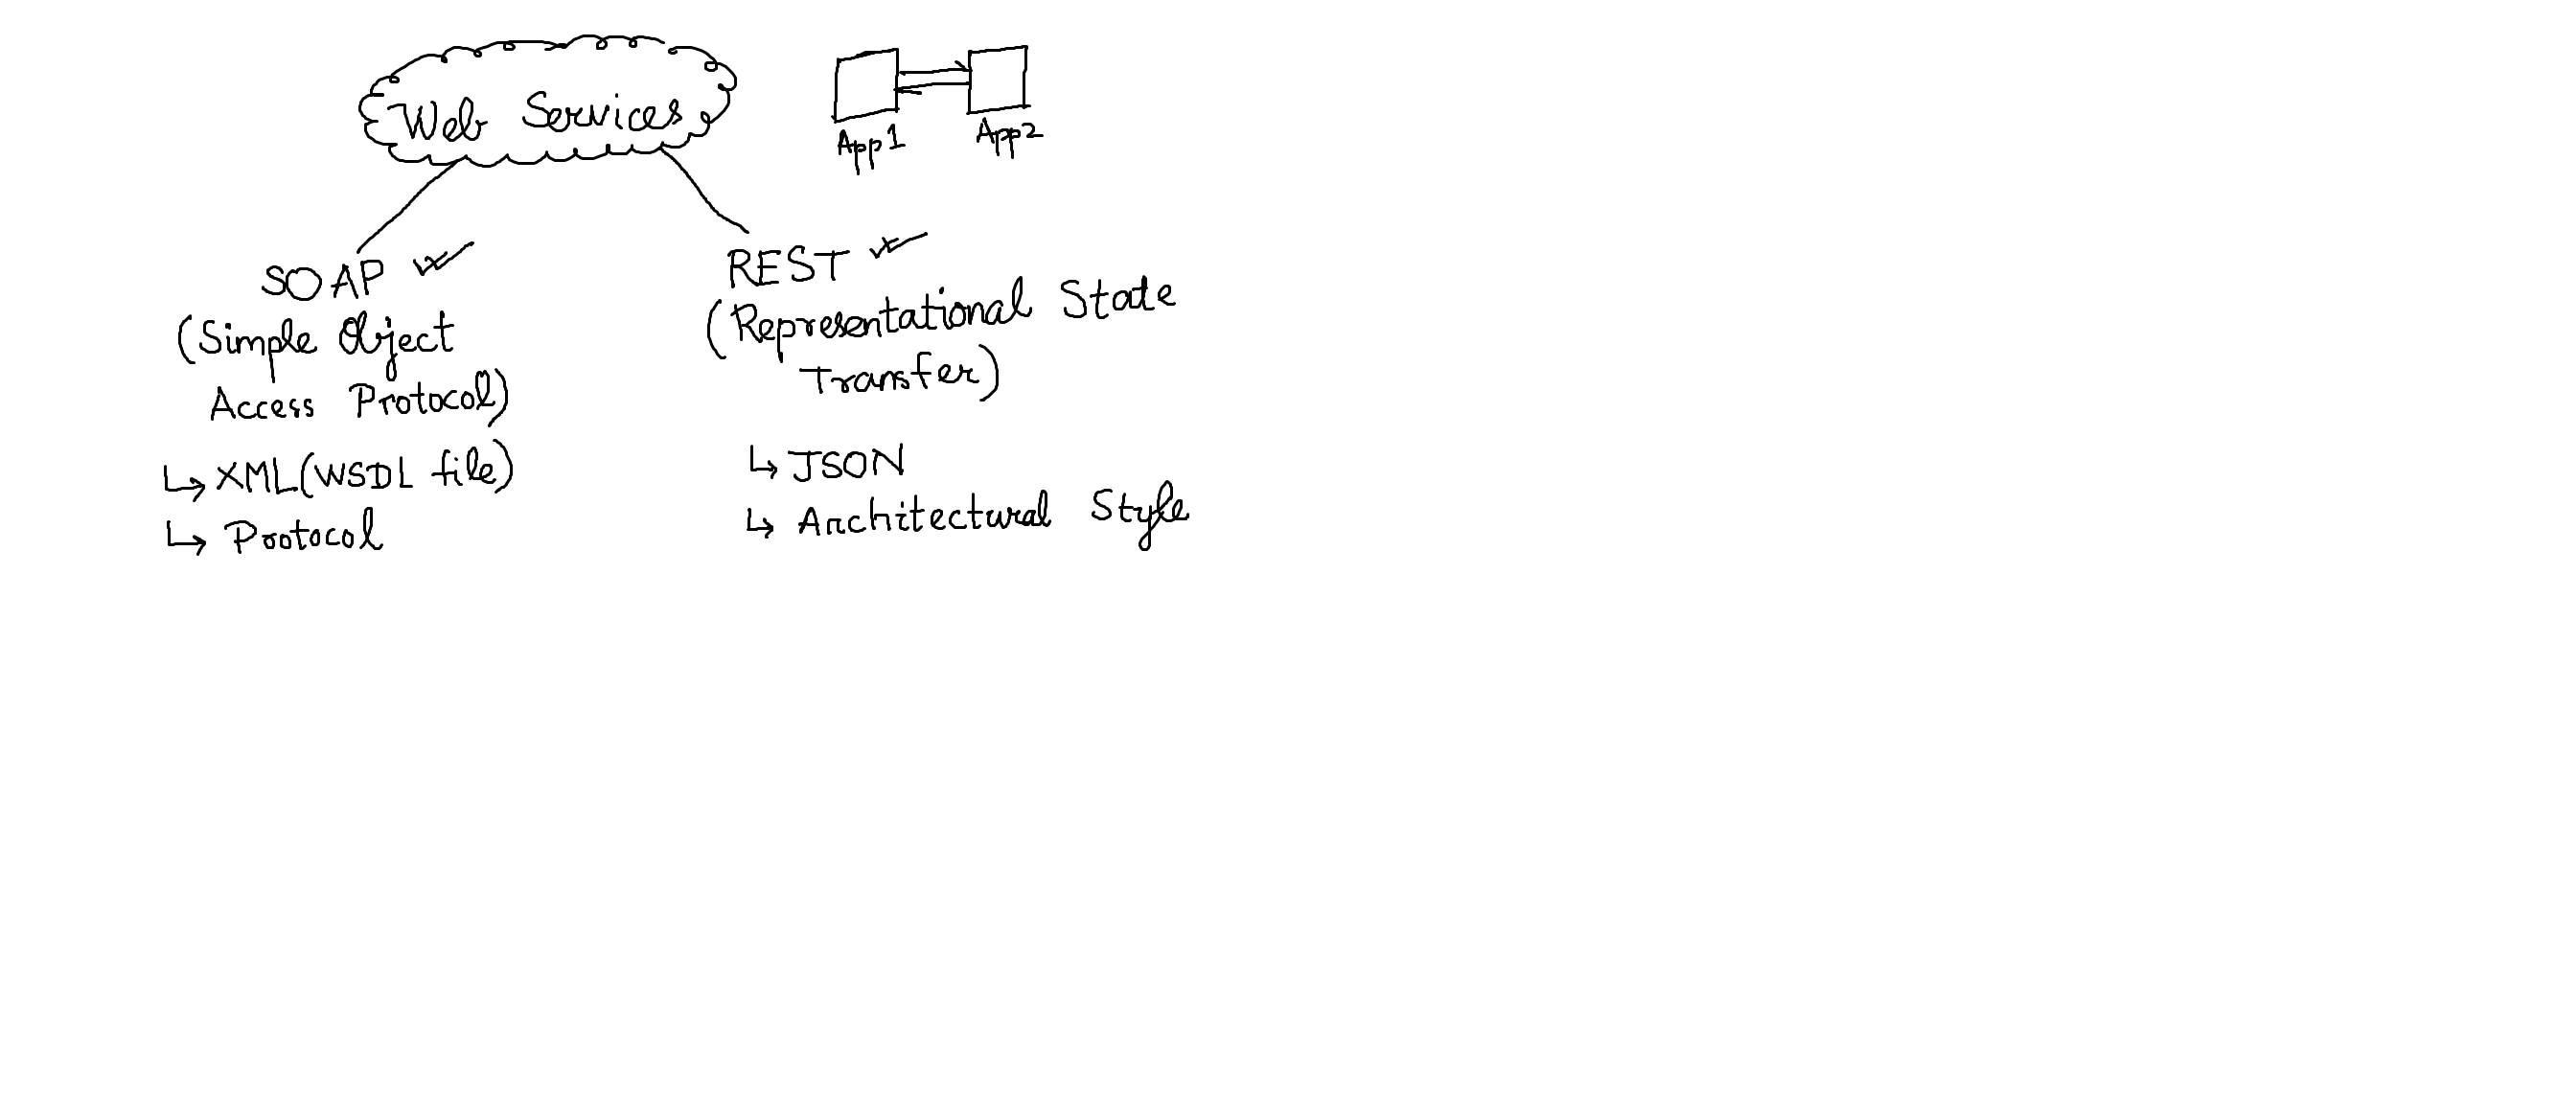 Web Services
App1
App2
SOAP
(Simple Object
Access Protocol)
↳ XML(WSDL file)
↳ Protocol
REST
(Representational State
Transfer)
↳ JSON
↳ Architectural Style